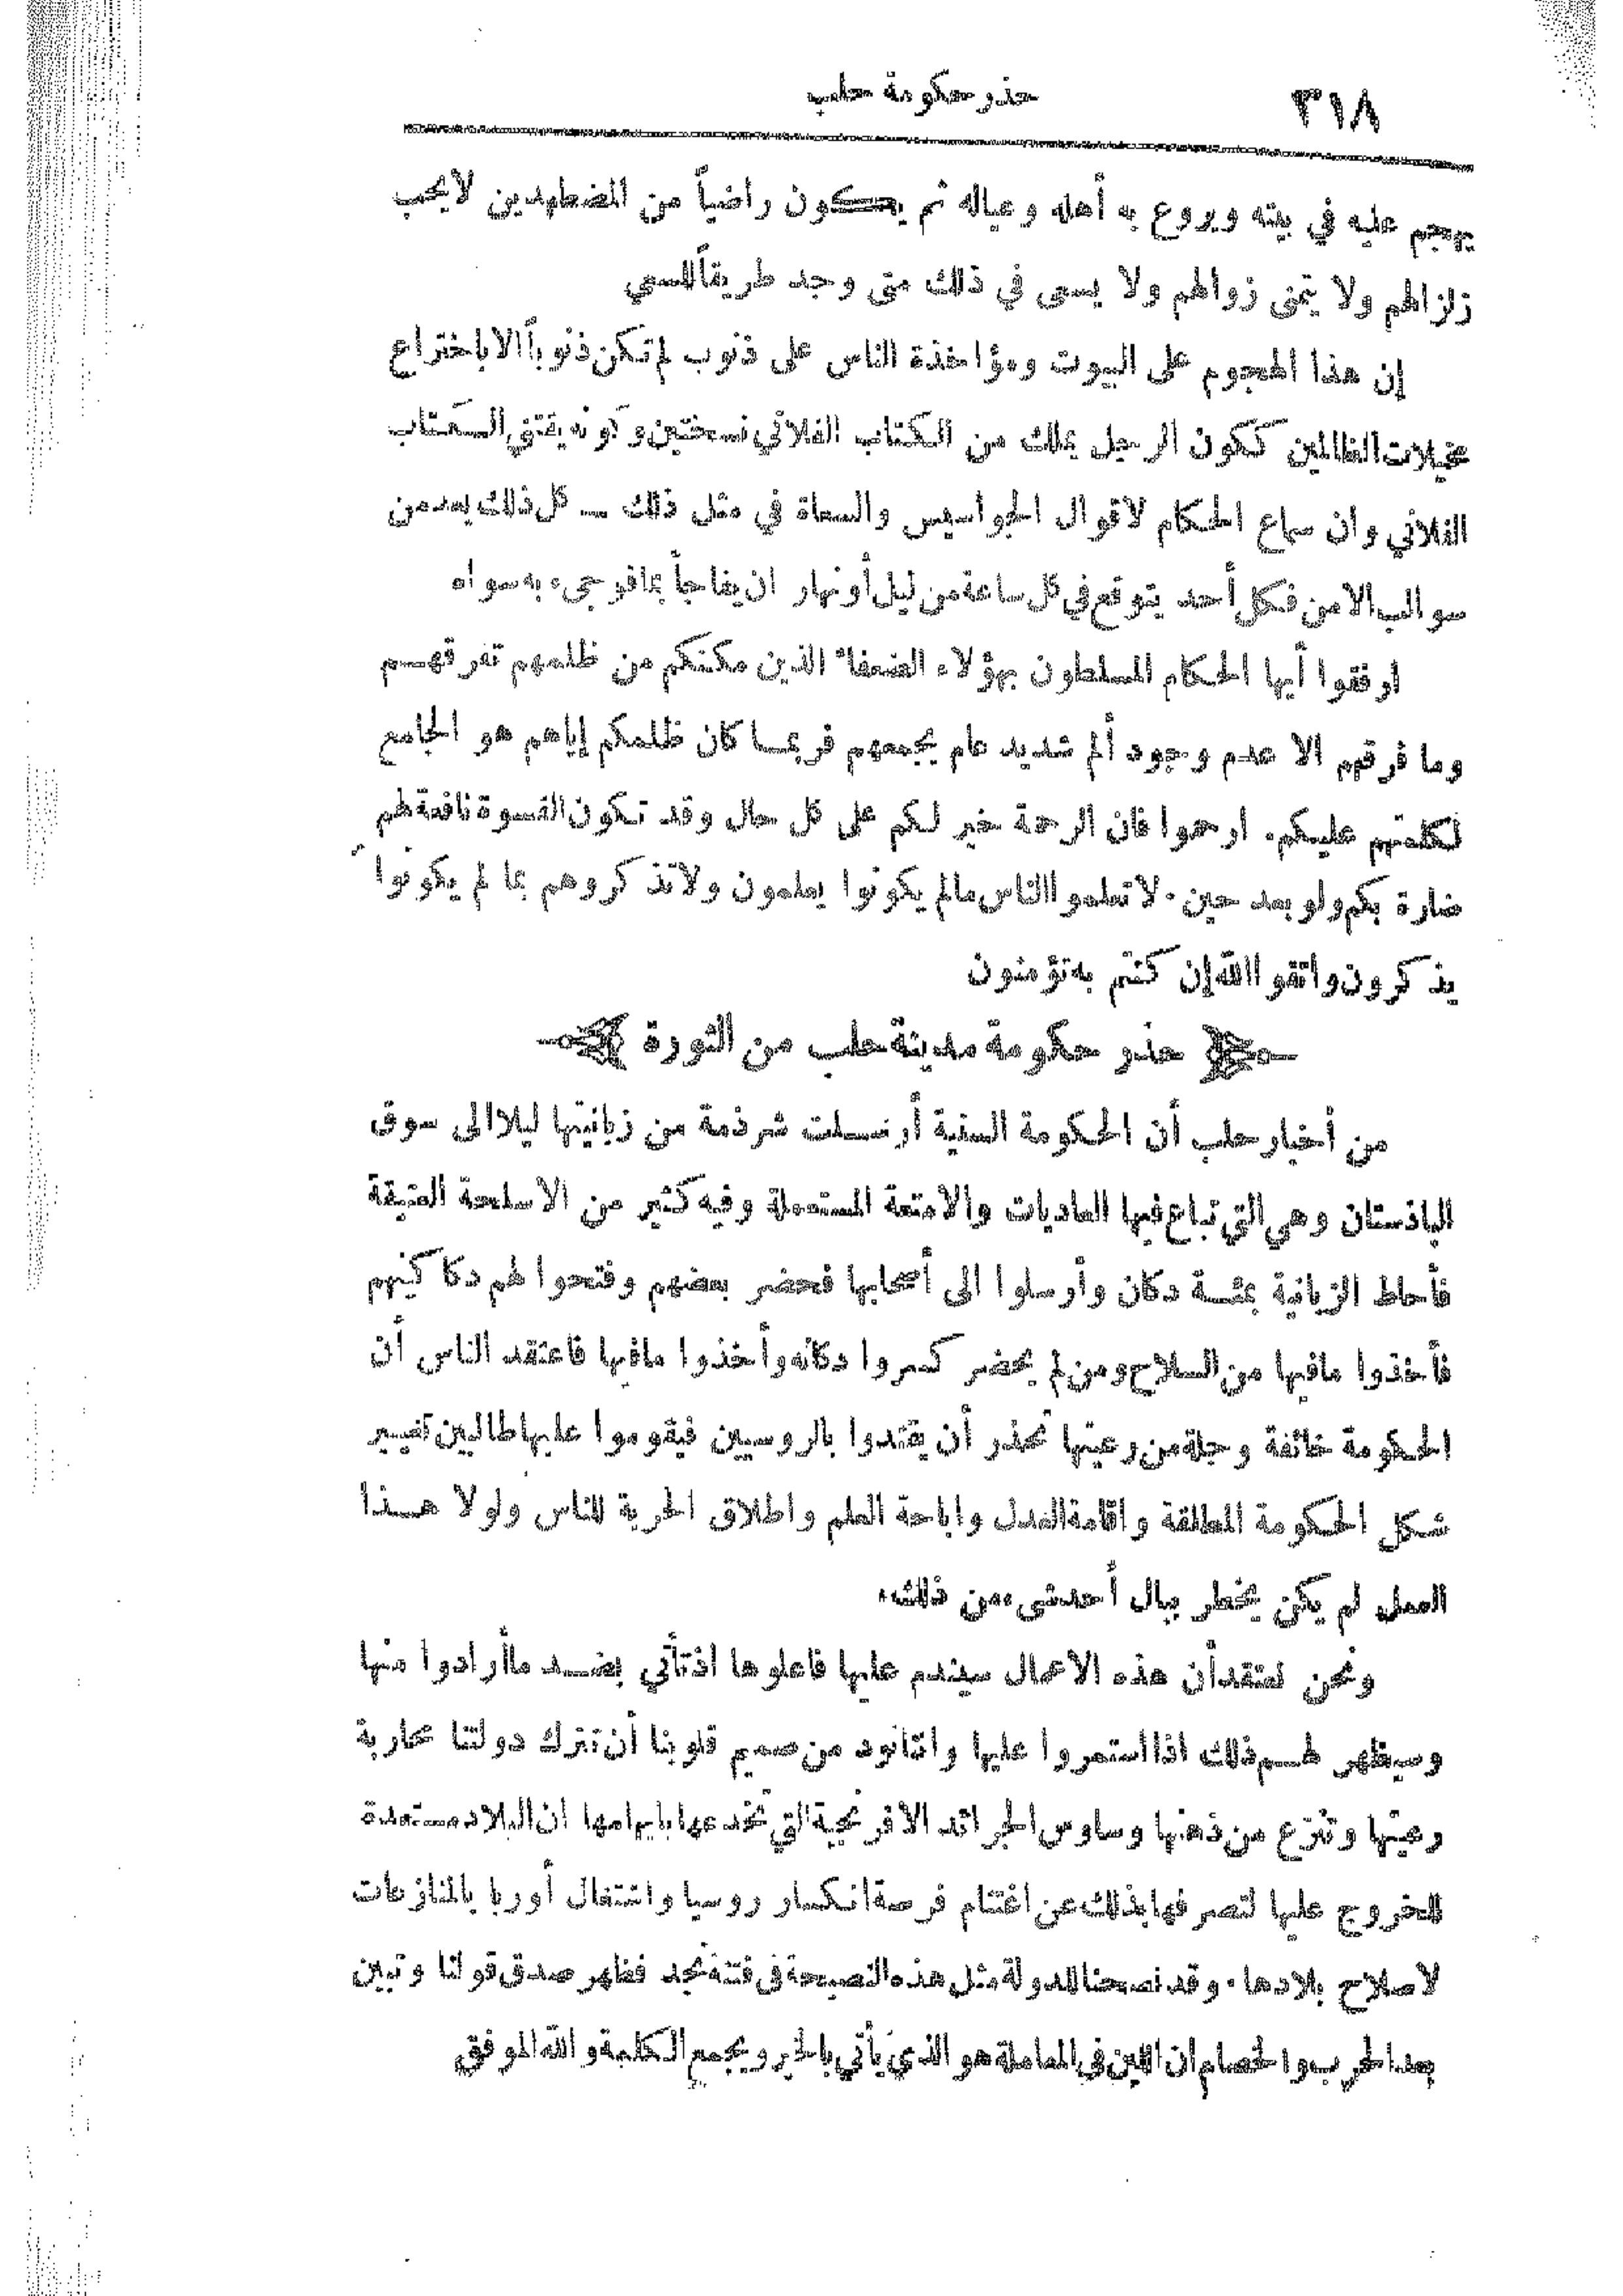 ٣١٨ حذر حكومة حلب
يهجم عليه في بيته ويروع به أهله وعياله ثم يكون راضياً من المضطهدين لا يحب
زلزالهم ولا يتمنى زوالهم ولا يسعى في ذلك متى وجد طريقاً للسعي
إن هذا الهجوم على البيوت ومؤاخذة الناس على ذنوب لم تكن ذنوباً الا باختراع
مخيلات الظالمين ككون الرجل يملك من الكتاب الفلاني نسختين وكونه يقتني الكتاب
الفلاني وان سماع الحكام لاقوال الجواسيس والسعاة في مثل ذلك ــ كل ذلك يعد من
سوالب الامن فكل أحد يتوقع في كل ساعة من ليل أو نهار ان يفاجأ بما فوجىء به سواه
ارفقوا أيها الحكام المسلطون بهؤلاء الضعفاء الذين مكنكم من ظلمهم تفرقهم
وما فرقهم الا عدم وجود ألم شديد عام يجمعهم فربما كان ظلمكم إياهم هو الجامع
لكلمتهم عليكم. ارحموا فان الرحمة خير لكم على كل حال وقد تكون القسوة نافعة لهم
ضارة بكم ولو بعد حين. لا تعلموا الناس مالم يكونوا يعلمون ولا تذكروهم بما لم يكونوا
يذكرون واتقوا الله إن كنتم به تؤمنون
حذر حكومة مدينة حلب من الثورة
من أخبار حلب أن الحكومة السنية أرسلت شرذمة من زبانيتها ليلا الى سوق
الباذستان وهي التي تباع فيها العاديات والامتعة المستعملة وفيه كثير من الاسلحة العتيقة
فأحاط الزبانية بمئة دكان وأرسلوا الى أصحابها فحضر بعضهم وفتحوا لهم دكاكينهم
فأخذوا مافيها من السلاح ومن لم يحضر كسروا دكانه وأخذوا مافيها فاعتقد الناس أن
الحكومة خائفة وجلة من رعيتها تحذر أن يقتدوا بالروسيين فيقوموا عليها طالبين تغيير
شكل الحكومة المطلقة واقامة العدل واباحة العلم واطلاق الحرية للناس ولولا هذا
العمل لم يكن يخطر ببال أحد شيء من ذلك.
ونحن نعتقد أن هذه الاعمال سيندم عليها فاعلوها اذ تأتي بضد ما أرادوا منها
وسيظهر لهم ذلك اذا استمروا عليها واننا نود من صميم قلوبنا أن تترك دولتنا محاربة
رعيتها وتنزع من ذهنها وساوس الجرائد الافرنجية التي تخدعها بايهامها ان البلاد مستعدة
للخروج عليها لتصرفها بذلك عن اغتنام فرصة انكسار روسيا واشتغال أوربا بالمنازعات
لاصلاح بلادها. وقد نصحنا للدولة مثل هذه النصيحة في فتنة نجد فظهر صدق قولنا وتبين
بعد الحرب والخصام ان اللين في المعاملة هو الذي يأتي بالخير ويجمع الكلمة والله الموفق